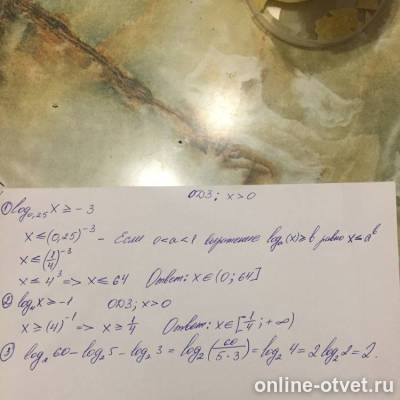 ОДЗ; x>0
① log₀,₂₅ x ≥ -3
x ≤ (0,25)⁻³ - Если 0<a<1 выражение logₐ(x) ≥ b равно x ≤ aᵇ
x ≤ (1/4)⁻³
x ≤ 4³ => x ≤ 64 Ответ: x∈(0; 64]
② log₄ x ≥ -1 ОДЗ; x>0
x ≥ (4)⁻¹ => x ≥ 1/4 Ответ: x∈[1/4; +∞)
③ log₂ 60 - log₂ 5 - log₂ 3 = log₂(60/(5·3)) = log₂ 4 = 2 log₂ 2 = 2.
online-otvet.ru